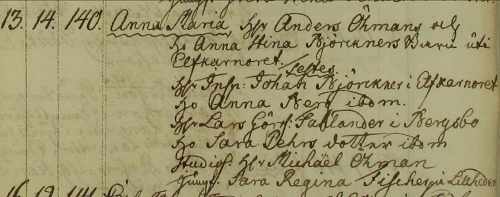 13. 14. 140. Anna Maria, Hr Anders Öhmans och
Ho Anna Stina Björckners Barn uti
Elfkarnoret. Testes.
Hr Insp: Johan Björckner i Elfkarnoret
Ho Anna Berg ibm.
Hr Lars Görs: Sallander i Bergsbo
Ho Sara Pehrs dotter ibm
Studios: Hr Michaël Öhman
Jungf: Sara Regina Fischer
16. 19. 141.